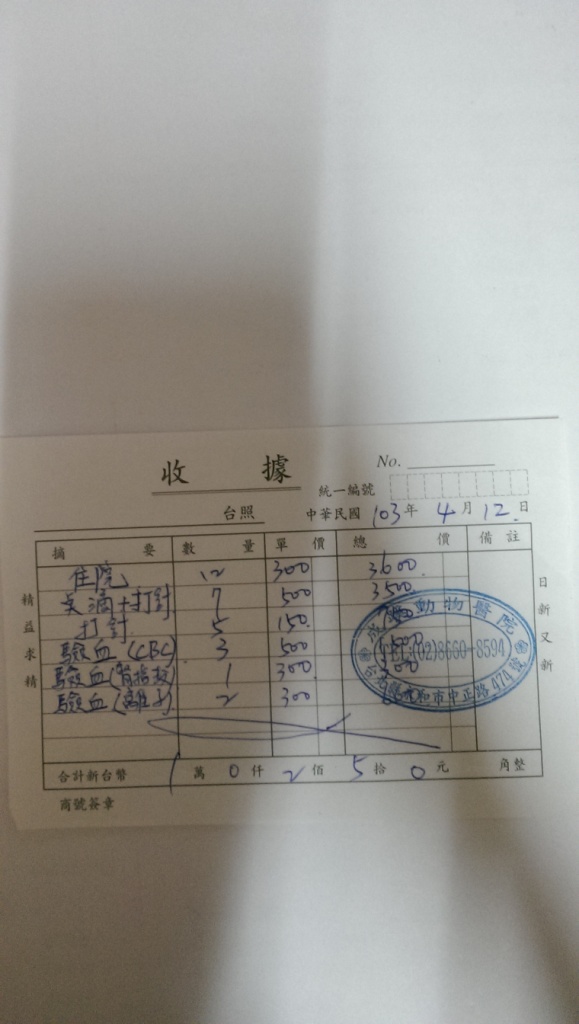 收 據
No.
統一編號
台照 中華民國 103 年 4 月 12 日
摘 要 數 量 單 價 總 價 備 註
住院 12 300 3600
點滴+打針 7 500 3500
打針 5 150 750
驗血(CBC) 3 500 1500
驗血(腎指數) 1 300 300
驗血(離子) 2 300
合計新台幣 1 萬 0 仟 2 佰 5 拾 0 元 角整
商號簽章
精益求精
日新又新
動物醫院
(02)8660-8594
中正路 474 號